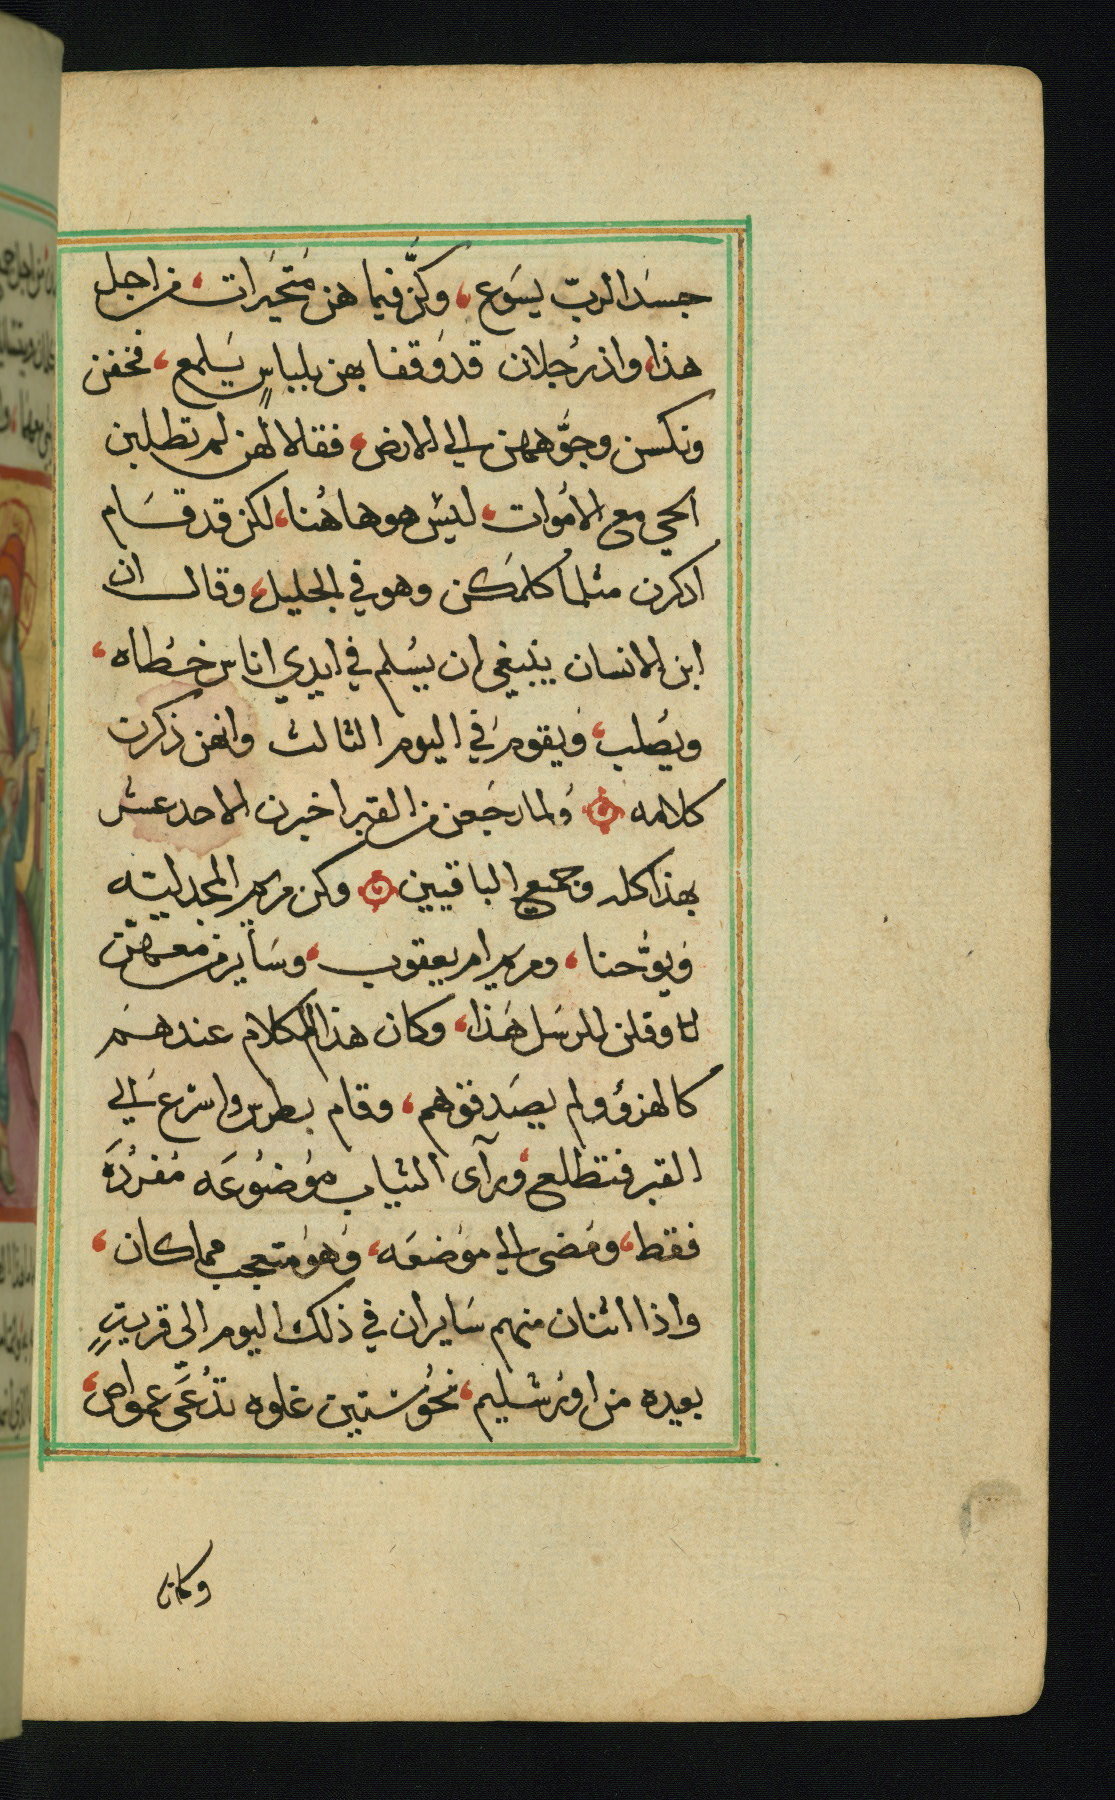 جسَدالربّ يسَوع، وكنَّ فيما هن مَتحيَرات، من اجل
هذا، واذ رُجلان قدوَقفا بهن بلباسٍ يَسلمع، فخفن
ونكسن وجوُّههن الي الارض، فقالا لَهن لم تطلبن
الحي مع الاُموات، ليسَ هو هاهُنا، لكن قد قام
اذكرن مثلما كلمَكن وهو في الجليل، وقال ان
ابن الانسان ينبغي ان يسُلم في ايدي اناس خطُاه،
ويصُلب، ويقومَ في اليوم الثالث وانهن ذكرن
كلامه ولما رجَعن من القبر اخبرن الاحد عشر
بهذا كله وجميع الباقيين وكن مريم المجدليته
ويوُحنا، ومريم ام يعقوب، وسَاير من معهنّ
وقلن للرسَل هَذا، وكان هذا الكلام عندهم
كالهزؤ ولم يصَدقوهم، وقام بطرس واسَرع الي
القبر فتطلع، ورآى الثياب موُضوُعَه مُفردُةَ
فقط، ومَضى الي موَضعَه، وَهوَ متعجب مما كان،
واذا اثنان منهم سَايران في ذلك اليوم الى قريتٍ
بعيده من اورُشليم، نحوُ ستين غلوه تدُعَى عمواص،
وكان